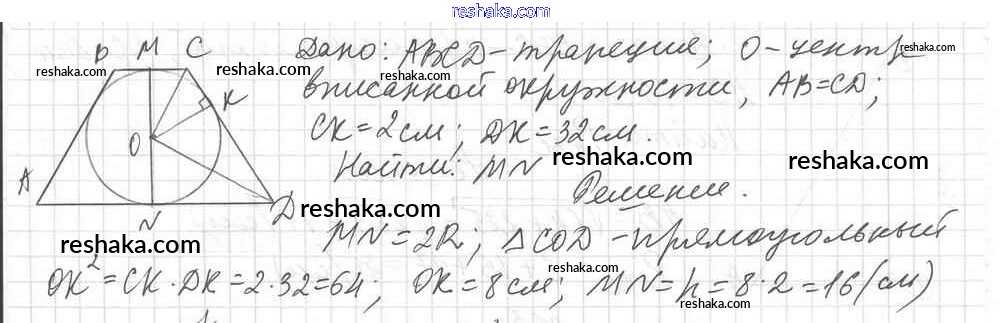 reshaka.com
B M C Дано: ABCD - трапеция; O - центр
вписанной окружности, AB=CD;
K
CK=2см; DK=32см.
O
Найти: MN
A
Решение.
D
N
MN=2R; △COD - прямоугольный
OK²=CK·DK=2·32=64; OK=8см; MN=h=8·2=16(см)
reshaka.com
reshaka.com
reshaka.com
reshaka.com
reshaka.com
reshaka.com
reshaka.com
reshaka.com
reshaka.com
reshaka.com
reshaka.com
reshaka.com
reshaka.com